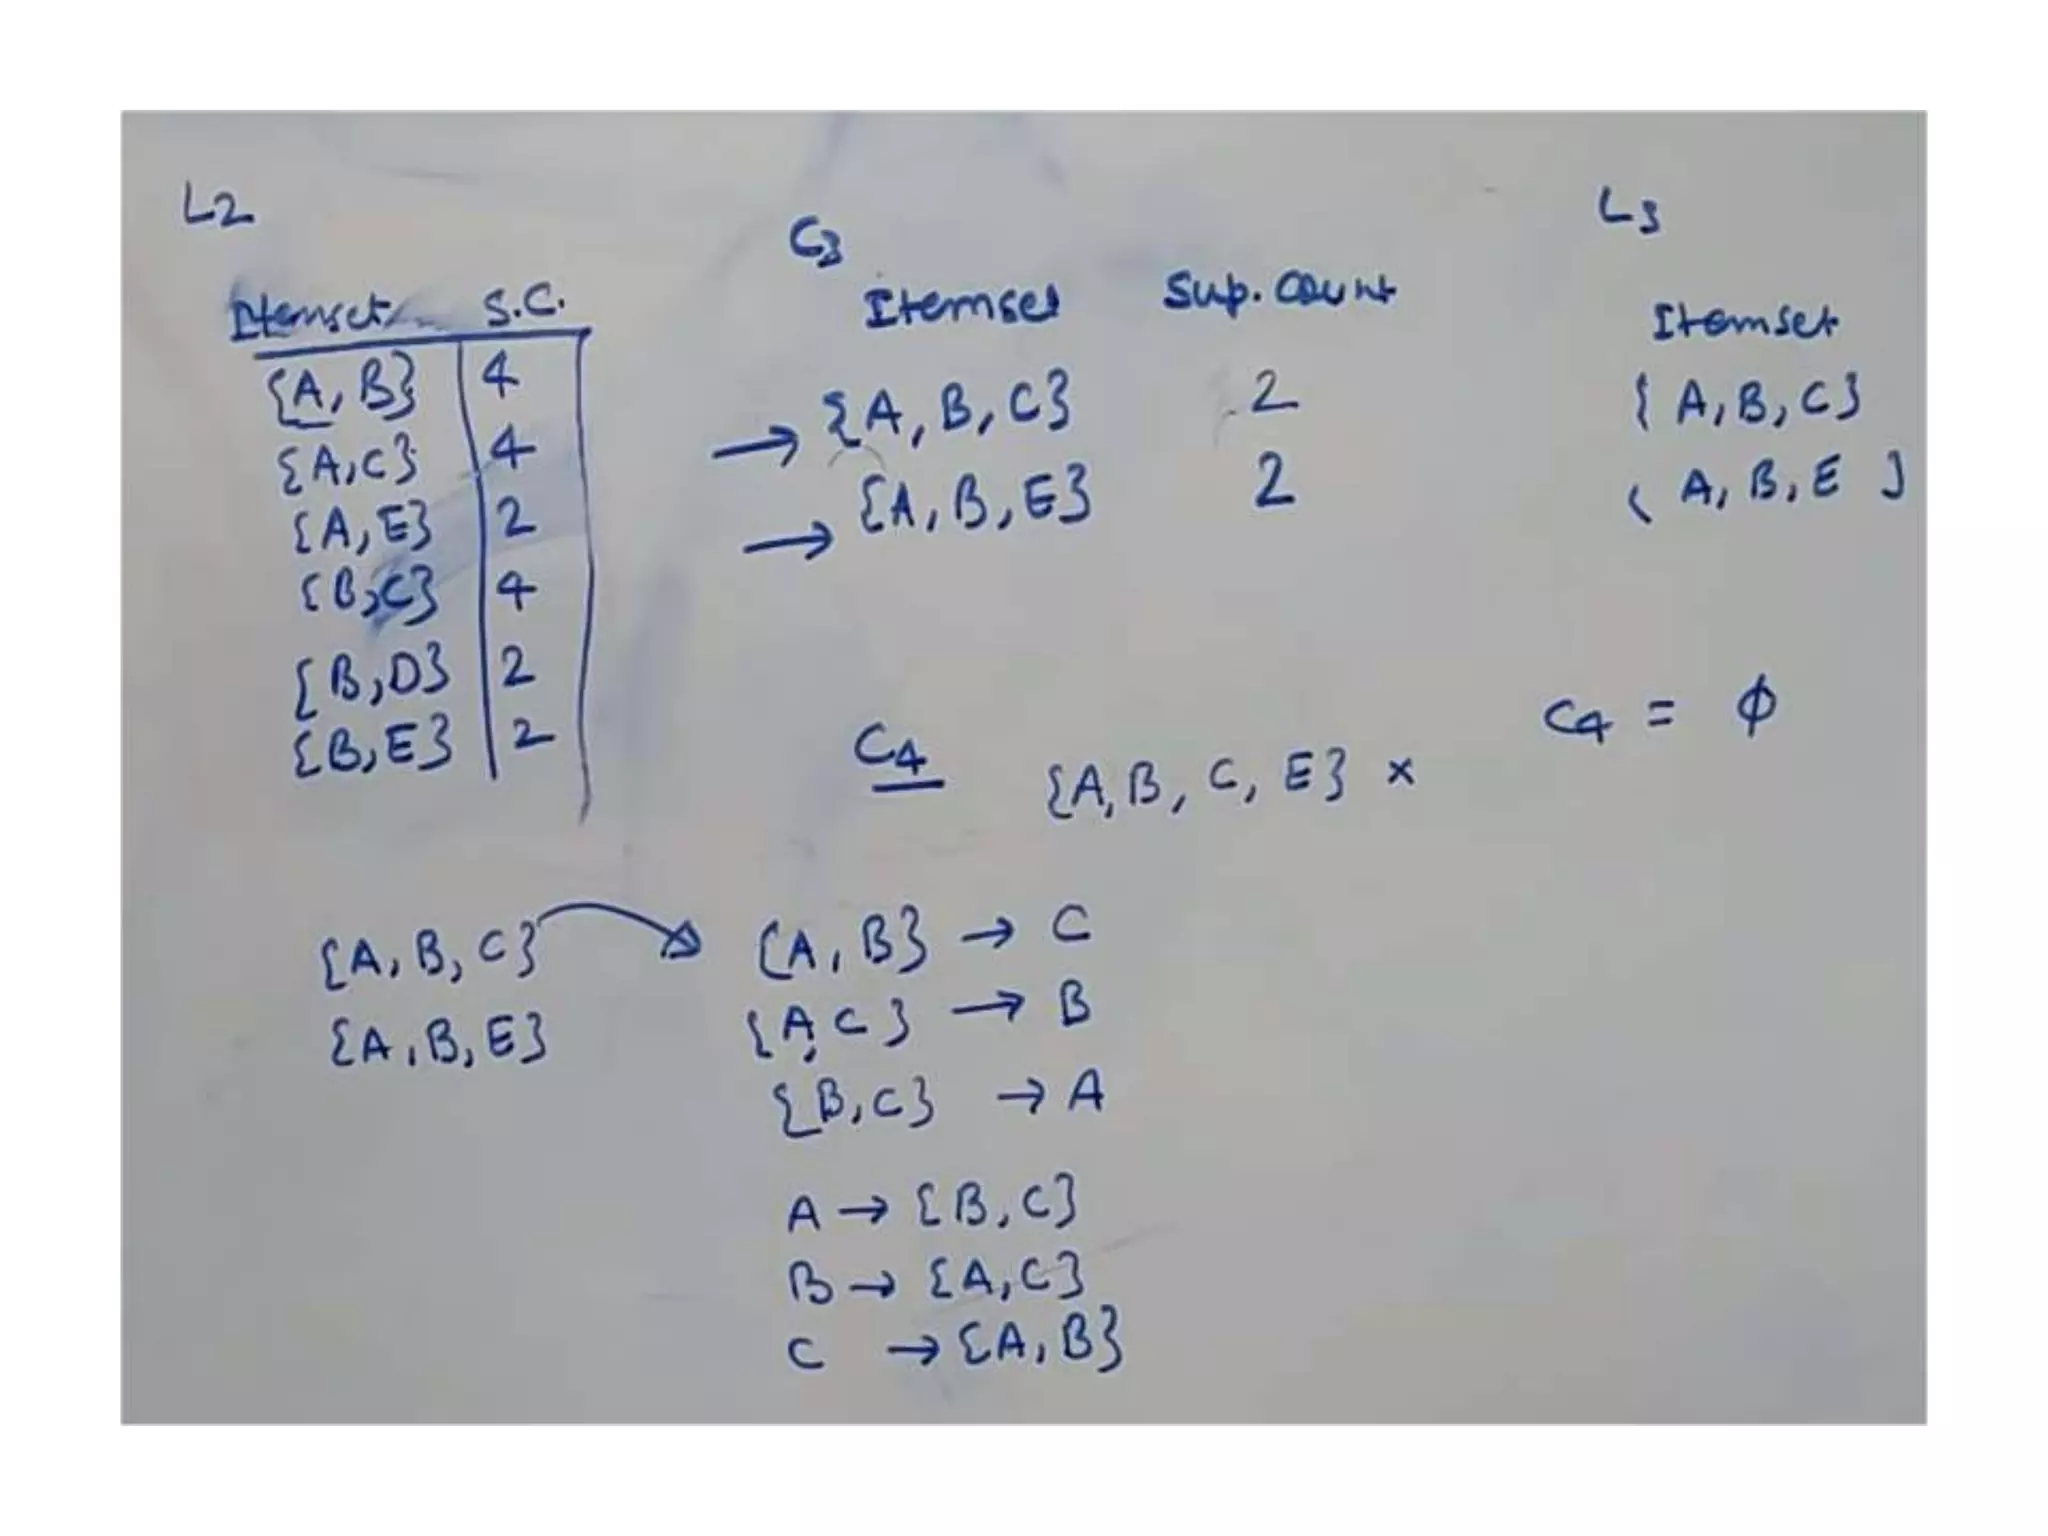 L2
Itemset S.C.
{A, B} 4
{A,C} 4
{A,E} 2
{B,C} 4
{B,D} 2
{B,E} 2
C3
Itemset Sup. Count
→ {A, B, C} 2
→ {A, B, E} 2
L3
Itemset
{ A, B, C}
{ A, B, E }
C4 {A, B, C, E} ×
C4 = ϕ
{A, B, C}
{A, B, E}
{A, B} → C
{A, C} → B
{B, C} → A
A → {B, C}
B → {A, C}
C → {A, B}